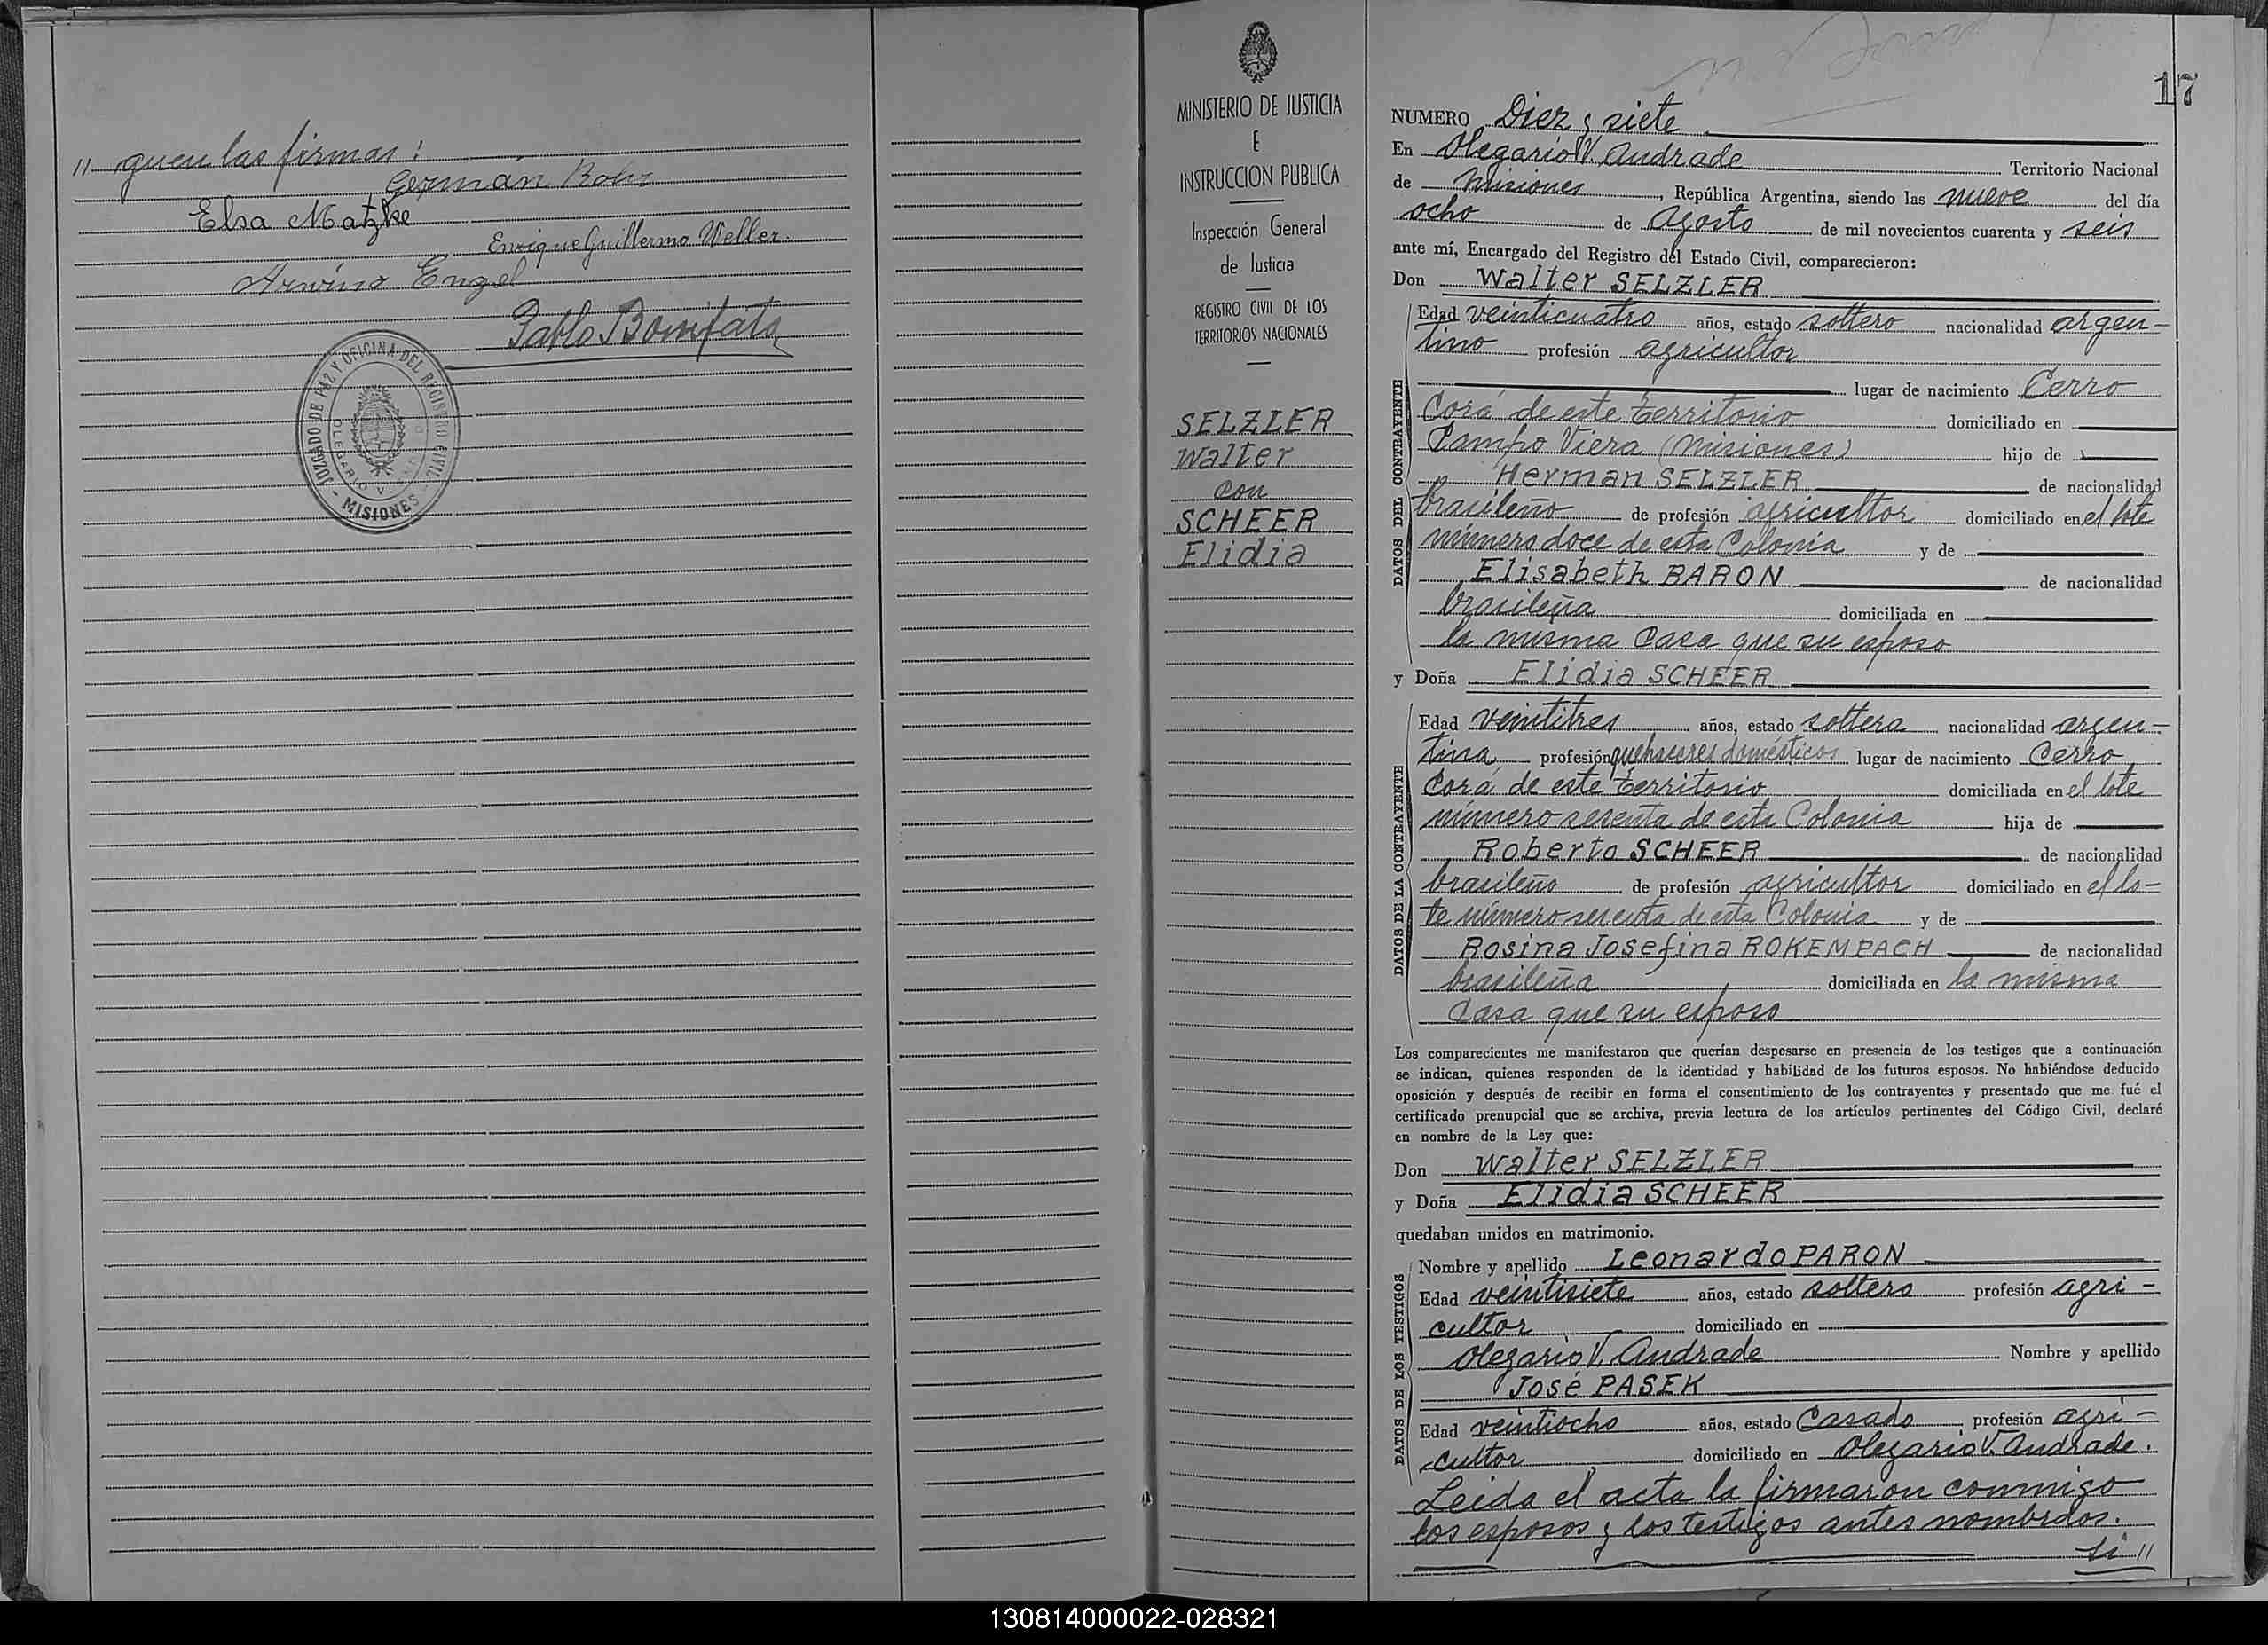 " guen las firmas:
German Rohr
Elsa Matzke
Enrique Guillermo Weller.
Arwino Engel
Pablo Bonifato
JUZGADO DE PAZ Y OFICINA DEL REGISTRO CIVIL
OLEGARIO V.
- MISIONES -
MINISTERIO DE JUSTICIA
E
INSTRUCCION PUBLICA
Inspección General
de Justicia
REGISTRO CIVIL DE LOS
TERRITORIOS NACIONALES
SELZLER
Walter
con
SCHEER
Elidia
17
NUMERO Diez y siete
En Olegario V. Andrade Territorio Nacional
de Misiones, República Argentina, siendo las nueve del día
ocho de Agosto de mil novecientos cuarenta y seis
ante mí, Encargado del Registro del Estado Civil, comparecieron:
Don Walter SELZLER
DATOS DEL CONTRAYENTE
Edad veinticuatro años, estado soltero nacionalidad argen-
tino profesión agricultor
lugar de nacimiento Cerro
Corá de este territorio domiciliado en
Campo Viera (Misiones) hijo de
Herman SELZLER de nacionalidad
brasileño de profesión agricultor domiciliado en el lote
número doce de esta Colonia y de
Elisabeth BARON de nacionalidad
brasileña domiciliada en
la misma casa que su esposo
y Doña Elidia SCHEER
DATOS DE LA CONTRAYENTE
Edad veintitres años, estado soltera nacionalidad argen-
tina profesión quehaceres domésticos lugar de nacimiento Cerro
Corá de este territorio domiciliada en el lote
número sesenta de esta Colonia hija de
Roberto SCHEER de nacionalidad
brasileño de profesión agricultor domiciliado en el lo-
te número sesenta de esta Colonia y de
Rosina Josefina ROKEMPACH de nacionalidad
brasileña domiciliada en la misma
casa que su esposo
Los comparecientes me manifestaron que querían desposarse en presencia de los testigos que a continuación
se indican, quienes responden de la identidad y habilidad de los futuros esposos. No habiéndose deducido
oposición y después de recibir en forma el consentimiento de los contrayentes y presentado que me fué el
certificado prenupcial que se archiva, previa lectura de los artículos pertinentes del Código Civil, declaré
en nombre de la Ley que:
Don Walter SELZLER
y Doña Elidia SCHEER
quedaban unidos en matrimonio.
DATOS DE LOS TESTIGOS
Nombre y apellido Leonardo PARON
Edad veintisiete años, estado soltero profesión agri-
cultor domiciliado en
Olegario V. Andrade Nombre y apellido
José PASEK
Edad veintiocho años, estado Casado profesión agri-
cultor domiciliado en Olegario V. Andrade.
Leida el acta la firmaron conmigo
los esposos y los testigos antes nombrdos.
si "
130814000022-028321